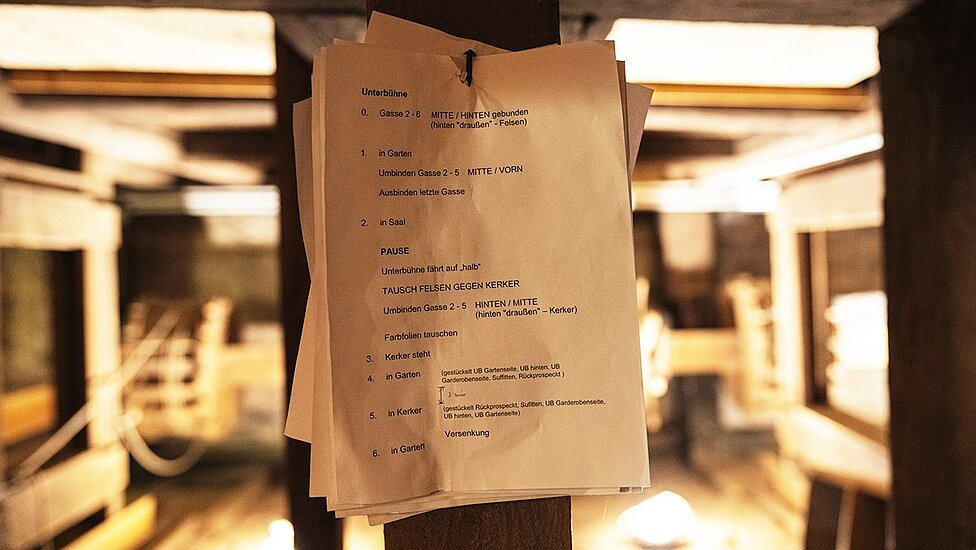 Unterbühne
0. Gasse 2 - 6 MITTE / HINTEN gebunden
(hinten "draußen" - Felsen)
1. in Garten
Umbinden Gasse 2 - 5 MITTE / VORN
Ausbinden letzte Gasse
2. in Saal
PAUSE
Unterbühne fährt auf „halb“
TAUSCH FELSEN GEGEN KERKER
Umbinden Gasse 2 - 5 HINTEN / MITTE
(hinten "draußen" – Kerker)
Farbfolien tauschen
3. Kerker steht
4. in Garten (gestückelt UB Gartenseite, UB hinten, UB
Garderobenseite, Sufitten, Rückprospeckt )
5. in Kerker (gestückelt Rückprospeckt, Sufitten, UB Garderobenseite,
UB hinten, UB Gartenseite)
Versenkung
6. in Garten